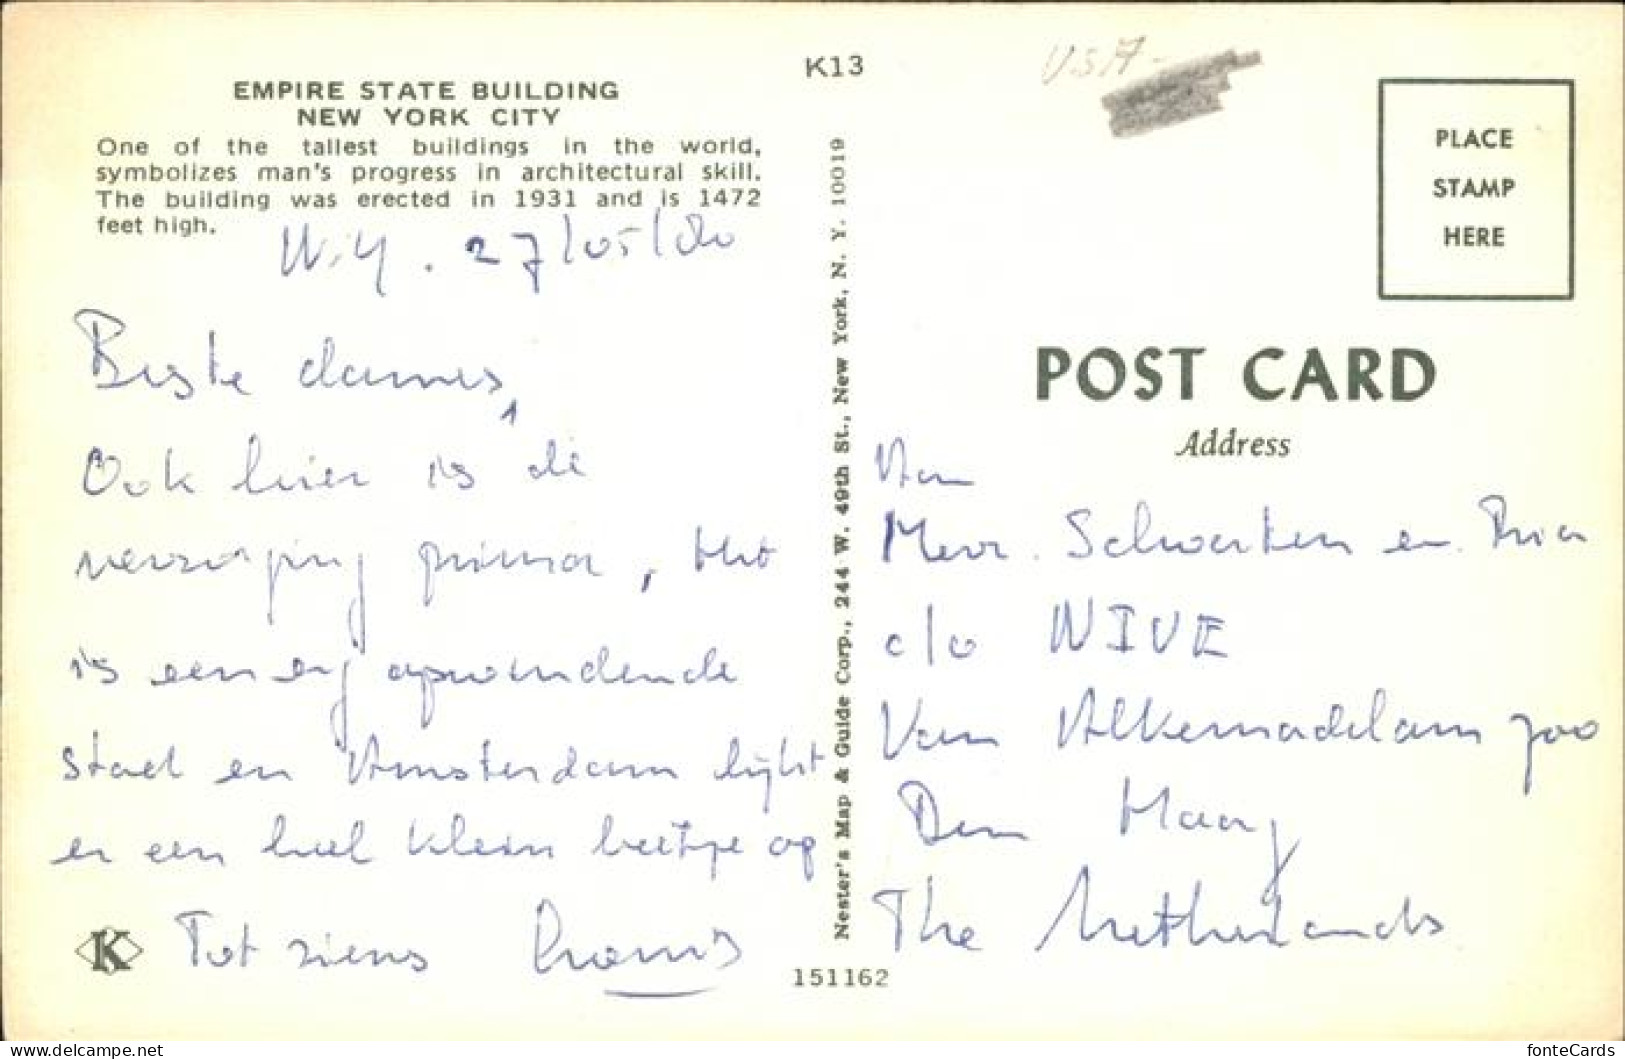 K13
USA-
EMPIRE STATE BUILDING
NEW YORK CITY
One of the tallest buildings in the world,
symbolizes man's progress in architectural skill.
The building was erected in 1931 and is 1472
feet high.
N.Y. 27/05/80
Beste dames,
Ook hier is de
verzorging prima, Het
is een erg opwindende
stad en Amsterdam lijkt
er een heel klein beetje op
Tot ziens
K
Nester's Map & Guide Corp., 244 W. 49th St., New York, N. Y. 10019
151162
PLACE
STAMP
HERE
POST CARD
Address
Aan
Mevr. Schwerten en Ria
c/o NIVE
Van Alkemadelaan 700
Den Haag
The Netherlands
delcampe.net
fonteCards